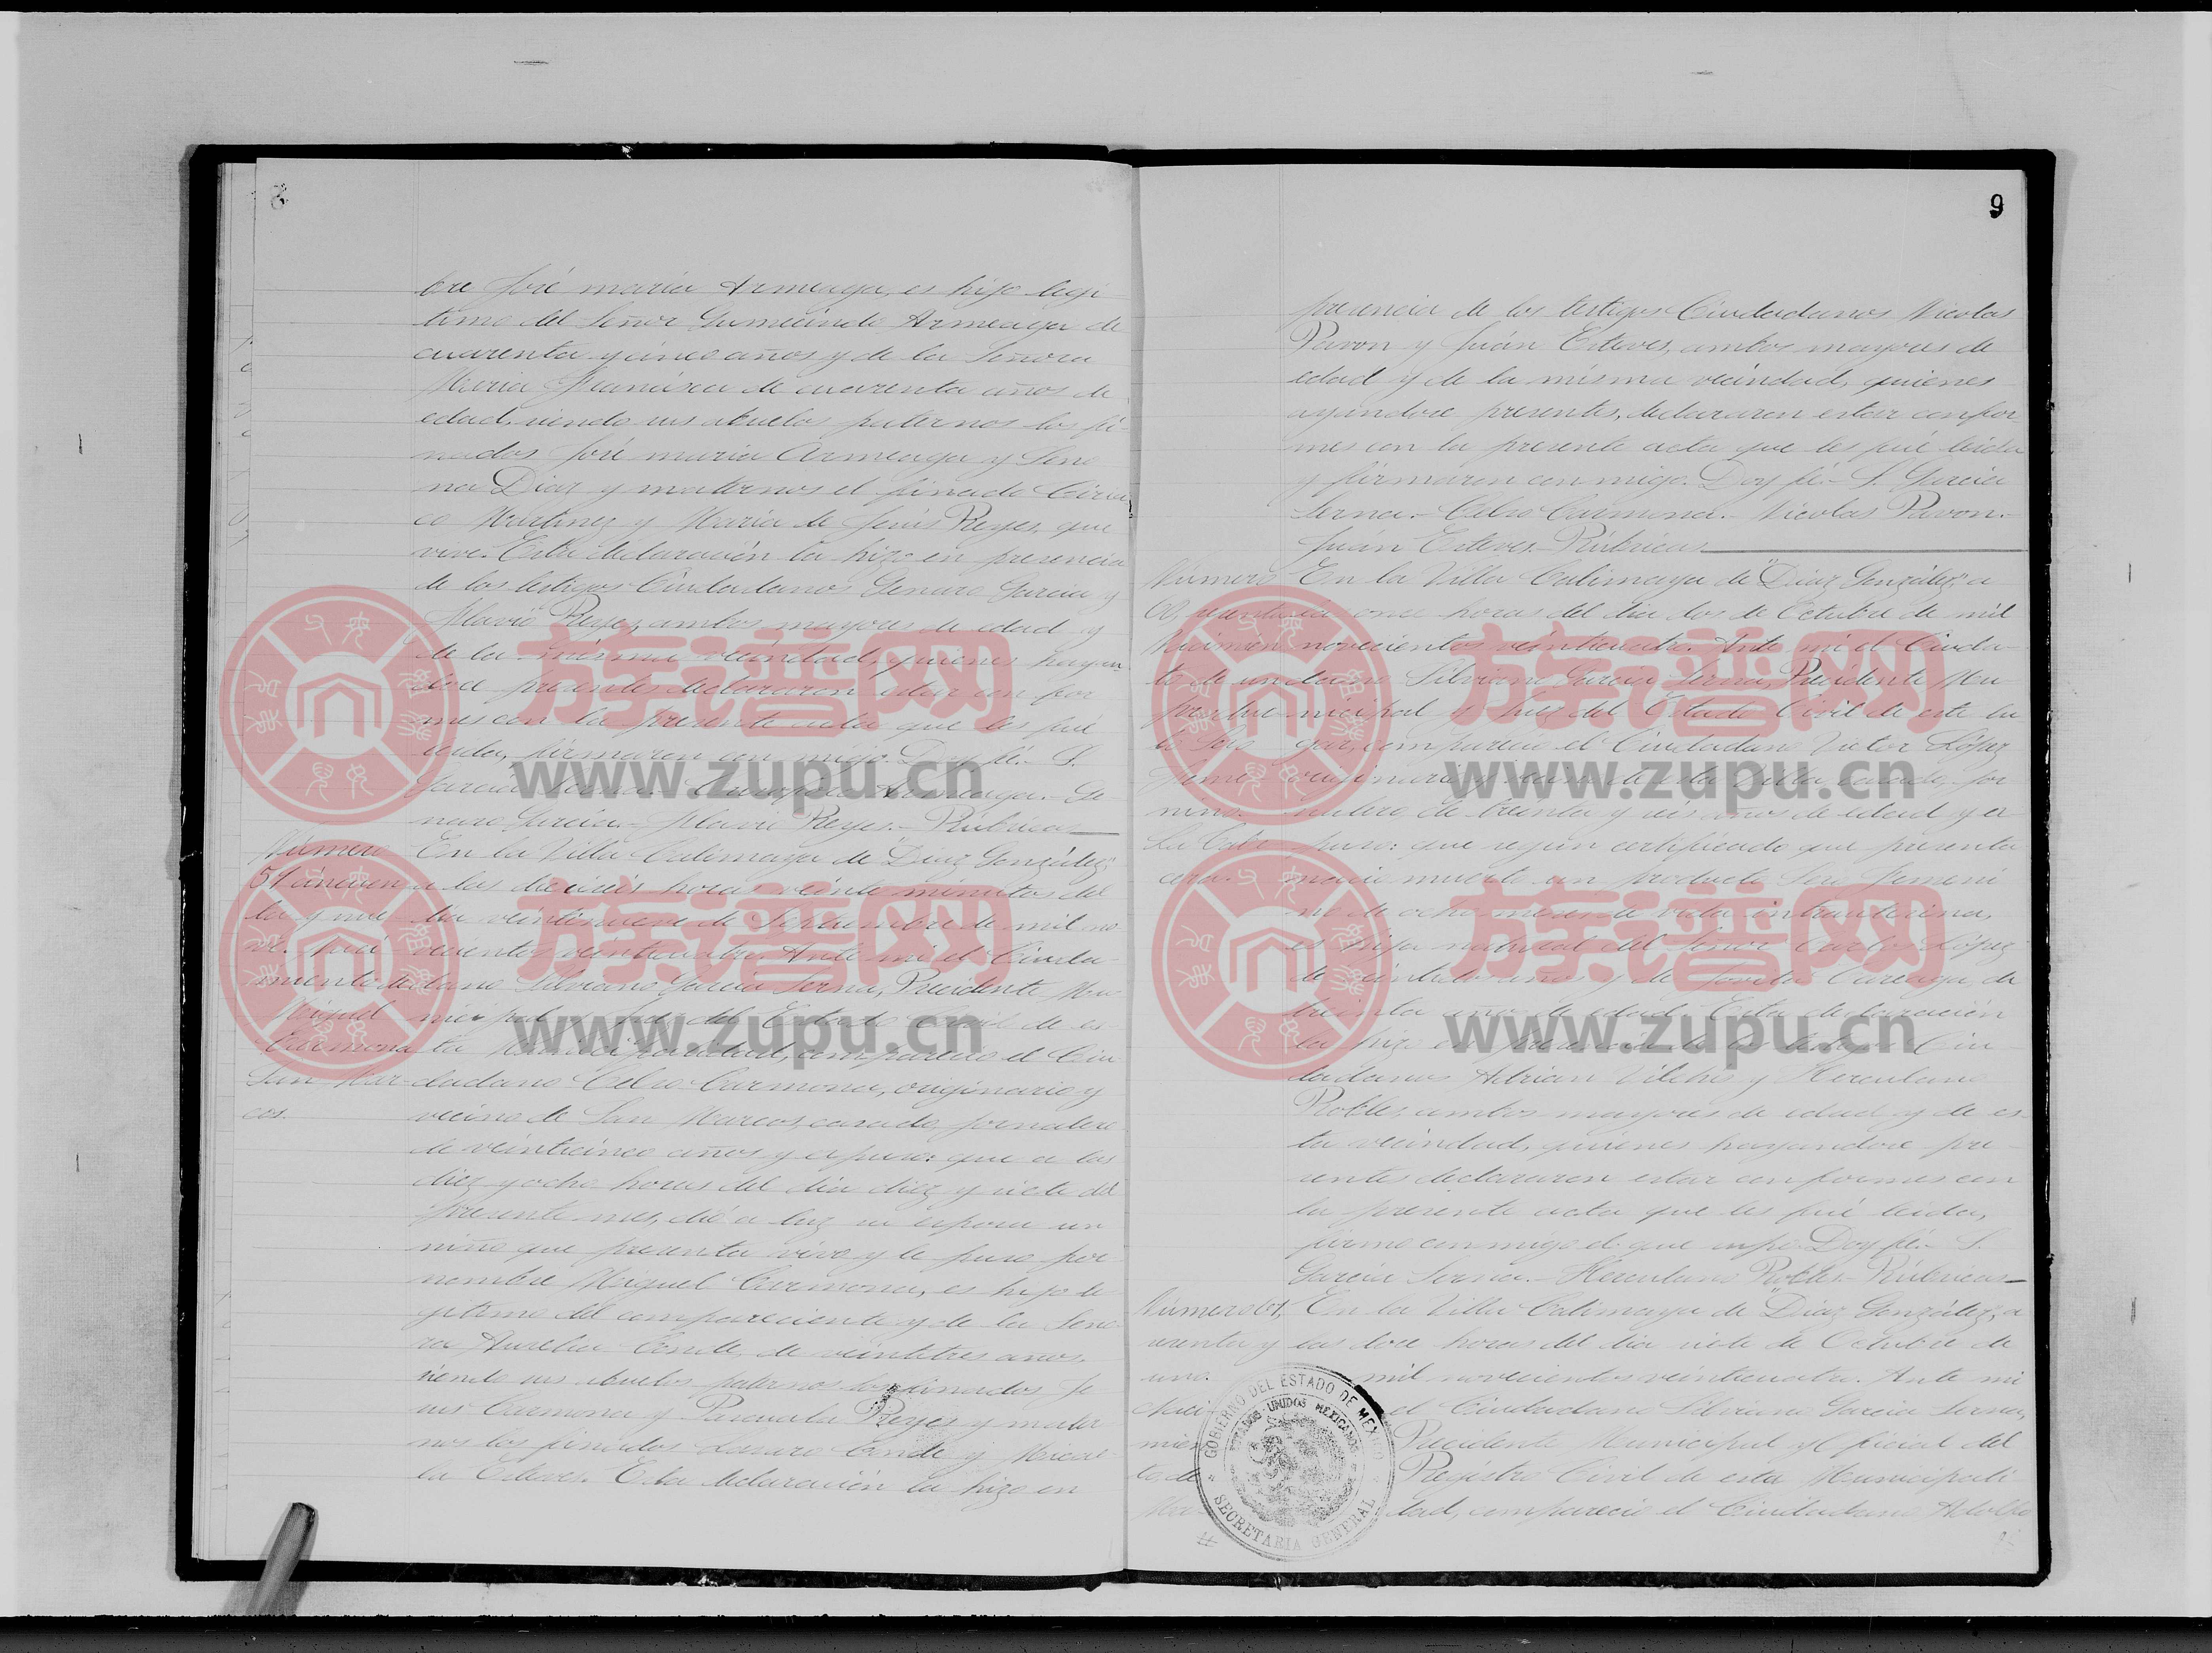 8
bre José maría Armeaga, es hijo legi
timo del Señor Gumecindo Armeaga de
cuarenta y cinco años y de la Señora
María Francisca de cuarenta años de
edad, siendo sus abuelos paternos los fi-
nados José maría Armeaga y Seno
na Diaz y maternos el finado Ciria
co Martinez y María de Jesús Reyes, que
vive. Esta declaración la hizo en presencia
de los testigos Ciudadanos Genaro Garcia y
Flavio Reyes, ambos mayores de edad y
de la misma vecindad, quienes hayan
dose presentes declararon estar con for
mes con la presente acta que les fué
leida, firmaron con migo. Doy fé.- S.
García Serna.- Armeaga.- Ge
naro Garcia.- Flavio Reyes.- Rúbricas
Número
59 cincuen
ta y nue
ve. Naci
miento de
Miguel
Carmona
San Mar
cos.
En la Villa Calimaya de "Diaz González,"
a las dieciseis horas veinte minutos del
dia veintinueve de Septiembre de mil no
vecientos veinticuatro. Ante mi el Ciuda-
dano Silviano Garcia Serna, Presidente Mu
nicipal y Juez del Estado Civil de es-
ta Municipalidad, compareció el Ciu
dadano Celso Carmona, originario y
vecino de San Marcos, casado, jornalero
de veinticinco años y expuso: que a las
diez y ocho horas del dia diez y siete del
presente mes, dió a luz su esposa un
niño que presenta vivo y le puso por
nombre Miguel Carmona, es hijo le
gitimo del compareciente y de la Seño
ra Aurelia Conde, de veintitres años,
siendo sus abuelos paternos los finados Je
sus Carmona y Pascuala Reyes y mater
nos los finados Lauro Conde y Micae-
la Esteves. Esta declaración la hizo en
9
presencia de los testigos Ciudadanos Nicolas
Pavon y Juán Esteves, ambos mayores de
edad y de la misma vecindad, quienes
ayandose presentes, declararon estar confor
mes con la presente acta que les fué leida
y firmaron con migo. Doy fé.- S. Garcia
Serna.- Celso Carmona.- Nicolas Pavon.-
Juán Esteves.- Rúbricas
Número
60, sesenta
to de un
producto
to Sexo
Feme
nino.
La Cabe
cera.
En la Villa Calimaya de "Diaz González," a
las once horas del dia dos de Octubre de mil
novecientos veinticuatro. Ante mi el Ciuda-
dano Silviano Garcia Serna, Presidente Mu
nicipal y Juez del Estado Civil de este lu
gar, compareció el Ciudadano Victor López
originario y vecino de esta Villa, casado, jor
nalero de treinta y seis años de edad y ex
puso: que según certificado que presenta
nació muerto un producto Sexo femeni
no de ocho meses de vida intrauterina,
es hija natural del Señor Carlos López
de veintidos años y de Jovita Careaga, de
treinta años de edad. Esta declaración
la hizo en presencia de los testigos Ciu
dadanos Adrian Vilchis y Herculano
Robles, ambos mayores de edad y de es
ta vecindad, quienes hayandose pre
sentes declararon estar conformes con
la presente acta que les fué leida,
firmo con migo el que supo. Doy fé.- S.
Garcia Serna.- Herculano Robles.- Rúbricas
Número 61,
sesenta y
uno.
Naci-
mien
to de
Ma-
En la Villa Calimaya de "Diaz González," a
las doce horas del dia siete de Octubre de
mil novecientos veinticuatro. Ante mi
el Ciudadano Silviano Garcia Serna,
Presidente Municipal y Oficial del
Registro Civil de esta Municipali
dad, compareció el Ciudadano Adolfo
GOBIERNO DEL ESTADO DE MEXICO
ESTADOS UNIDOS MEXICANOS
SECRETARIA GENERAL
族谱网
www.zupu.cn
族谱网
www.zupu.cn
族谱网
www.zupu.cn
族谱网
www.zupu.cn